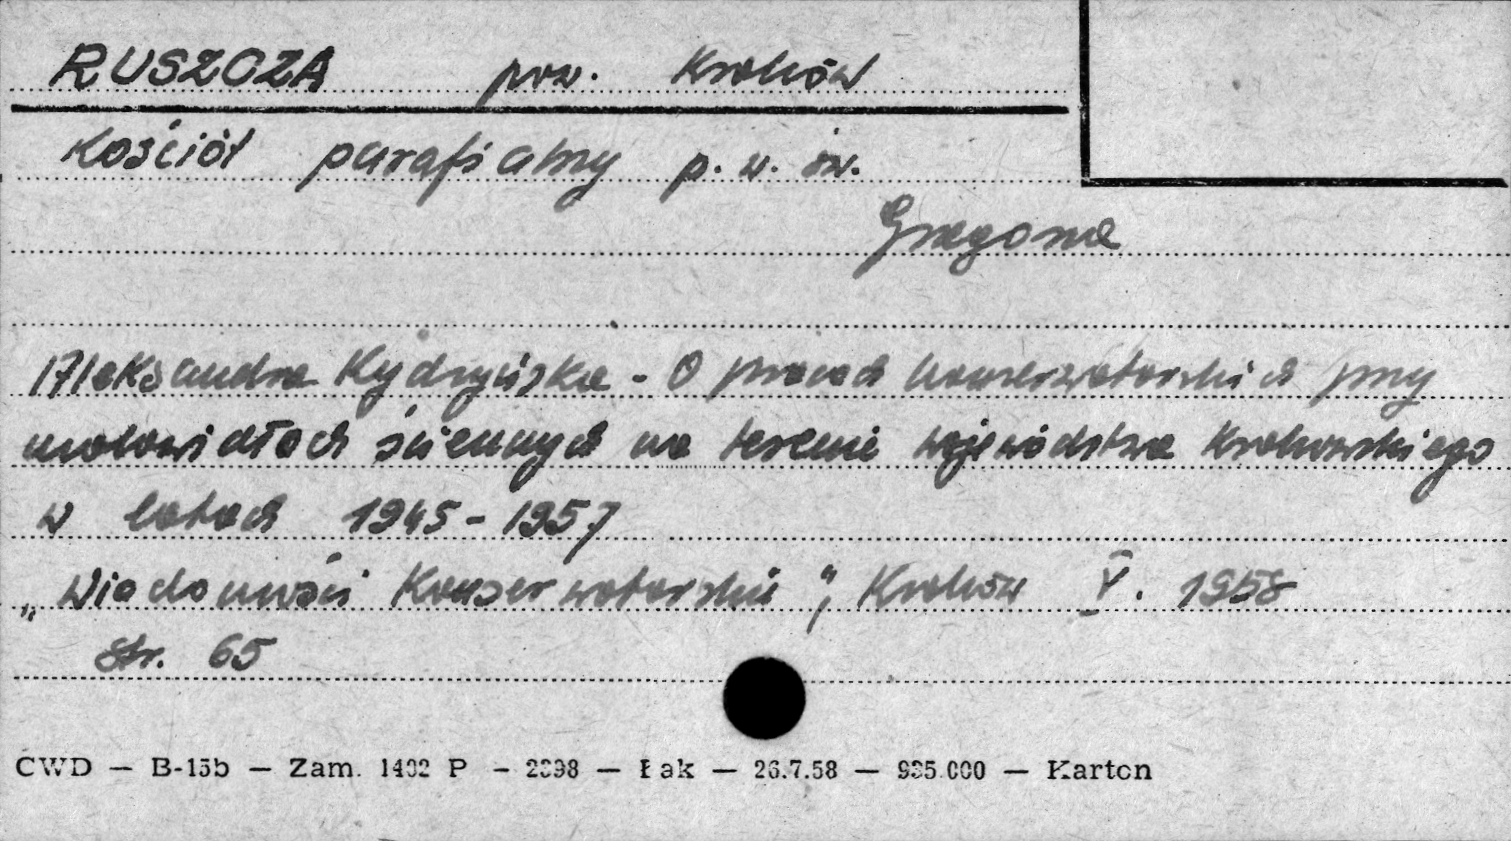 RUSZCZA pow. Kraków
Kościół parafialny p. w. św.
Grzegorza
Aleksandra Kydryńska - O pracach konserwatorskich przy
malowidłach ściennych na terenie województwa krakowskiego
w latach 1945-1957
„Wiadomości Konserwatorskie", Kraków V. 1958
str. 65
CWD — B-15b — Zam. 1402 P — 2398 — Łak — 26.7.58 — 935.000 — Karton